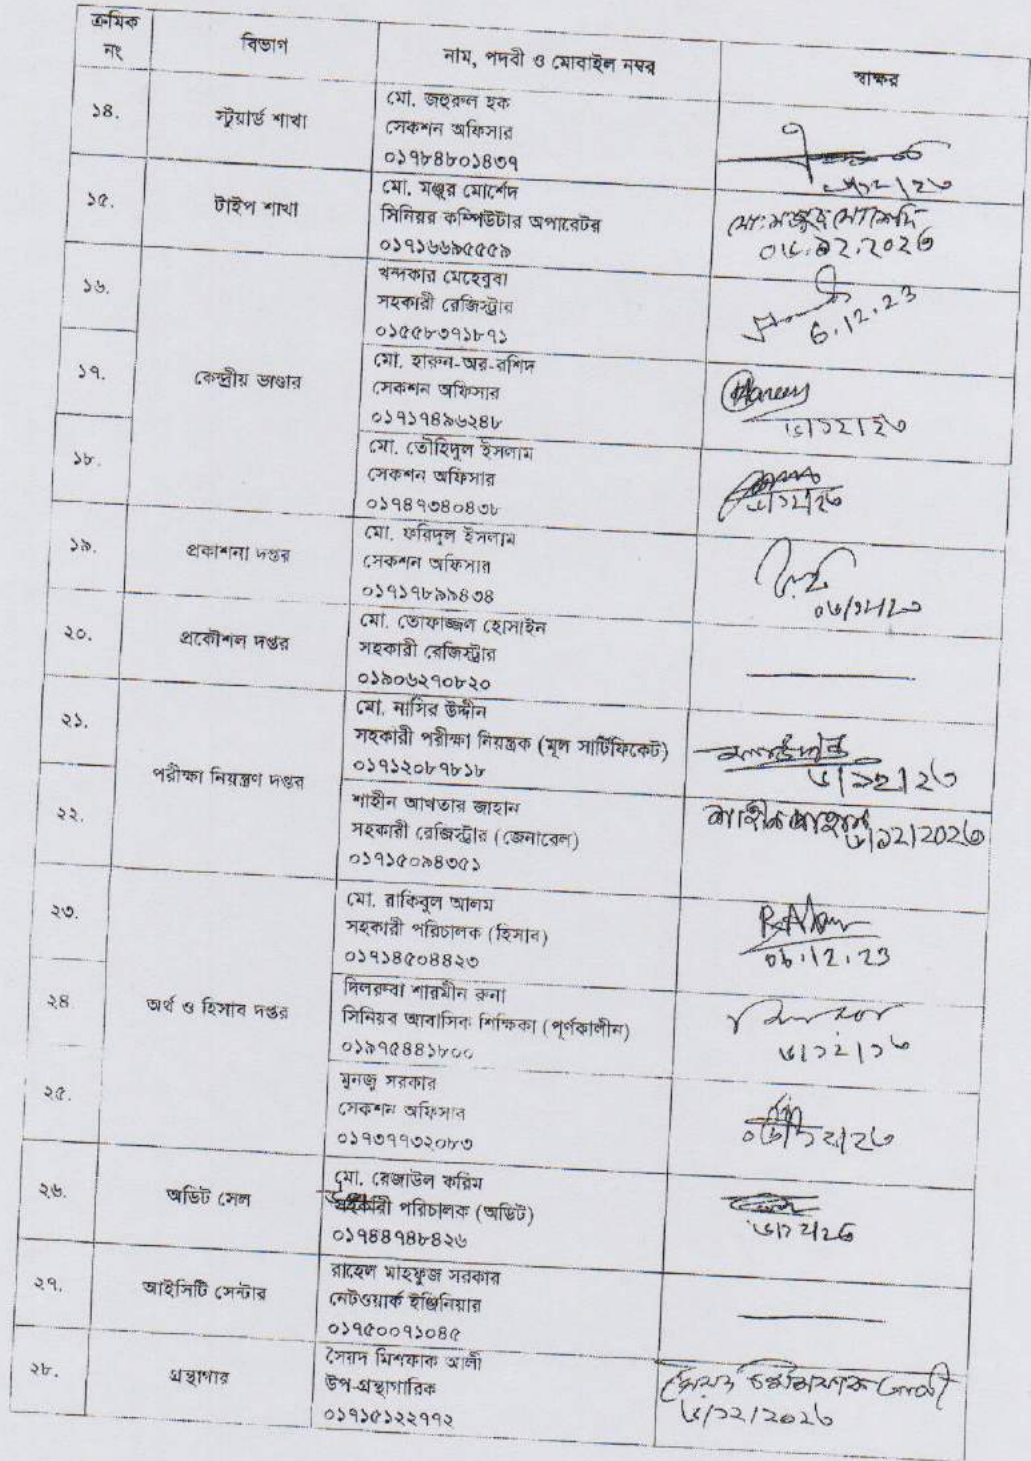 ক্রমিক নং
বিভাগ
নাম, পদবী ও মোবাইল নম্বর
স্বাক্ষর
১৪.
স্টুয়ার্ড শাখা
মো. জহুরুল হক
সেকশন অফিসার
০১৭৮৪৮০১৪৩৭
১৫.
টাইপ শাখা
মো. মঞ্জুর মোর্শেদ
সিনিয়র কম্পিউটার অপারেটর
০১৭১৬৬৯৫৫৫৯
১৬.
খন্দকার মেহেবুবা
সহকারী রেজিস্ট্রার
০১৫৫৮৩৭১৮৭১
6.12.23
১৭.
কেন্দ্রীয় ভাণ্ডার
মো. হারুন-অর-রশিদ
সেকশন অফিসার
০১৭১৭৪৯৬২৪৮
১৮.
মো. তৌহিদুল ইসলাম
সেকশন অফিসার
০১৭৪৭৩৪০৪৩৮
১৯.
প্রকাশনা দপ্তর
মো. ফরিদুল ইসলাম
সেকশন অফিসার
০১৭১৭৮৯৯৪৩৪
২০.
প্রকৌশল দপ্তর
মো. তোফাজ্জল হোসাইন
সহকারী রেজিস্ট্রার
০১৯০৬২৭০৮২০
২১.
পরীক্ষা নিয়ন্ত্রণ দপ্তর
মো. নাসির উদ্দীন
সহকারী পরীক্ষা নিয়ন্ত্রক (মূল সার্টিফিকেট)
০১৭১২০৮৭৮১৮
২২.
শাহীন আখতার জাহান
সহকারী রেজিস্ট্রার (জেনারেল)
০১৭১৫০৯৪৩৫১
২৩.
মো. রাকিবুল আলম
সহকারী পরিচালক (হিসাব)
০১৭১৪৫০৪৪২৩
06.12.23
২৪
অর্থ ও হিসাব দপ্তর
দিলরুবা শারমীন রুনা
সিনিয়র আবাসিক শিক্ষিকা (পূর্ণকালীন)
০১৯৭৫৪৪১৮০০
২৫.
মুনজু সরকার
সেকশন অফিসার
০১৭৩৭৭৩২০৮৩
২৬.
অডিট সেল
মো. রেজাউল করিম
পরিচালক (অডিট)
০১৭৪৪৭৪৮৪২৬
২৭.
আইসিটি সেন্টার
রাহেল মাহফুজ সরকার
নেটওয়ার্ক ইঞ্জিনিয়ার
০১৭৫০০৭১০৪৫
২৮.
গ্রন্থাগার
সৈয়দ মিশফাক আলী
উপ-গ্রন্থাগারিক
০১৭১৫১২২৭৭২